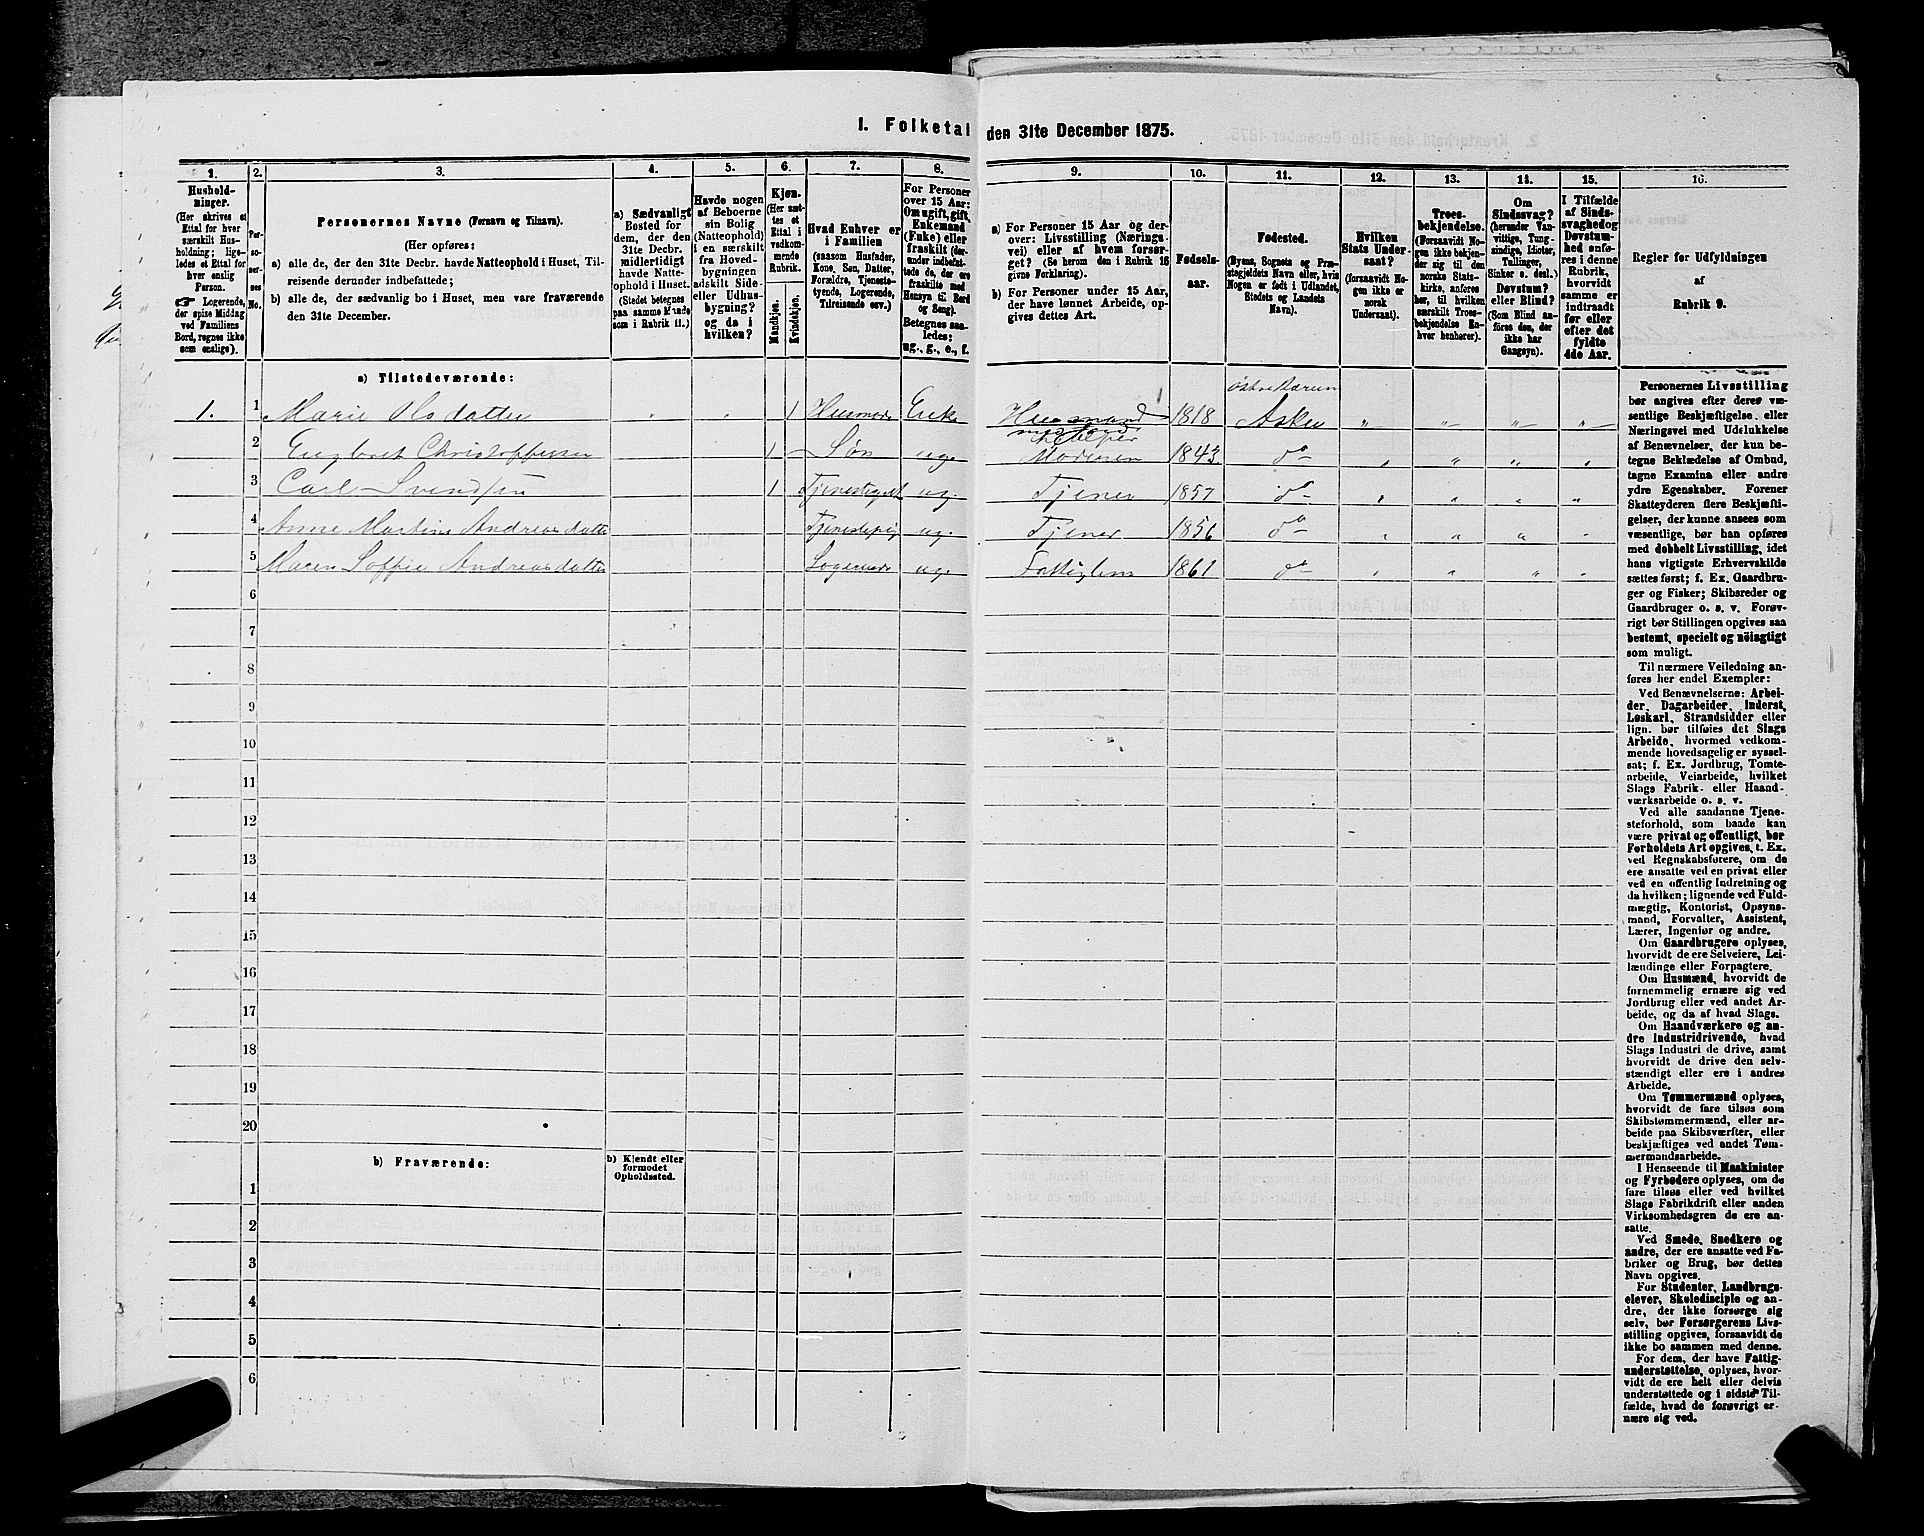 1. Folketal den 31te December 1875.
1.
Hushold-
ninger.
(Her skrives et
Ettal for hver
særskilt Hus-
holdning; lige-
ledes et Ettal for
hver enslig
Person.
☞ Logerende,
der spise Middag
ved Familiens
Bord, regnes ikke
som enslige).
2.
Per-
so-
ner-
nes
No.
3.
Personernes Navne (Fornavn og Tilnavn).
(Her opføres:
a) alle de, der den 31te Decbr. havde Natteophold i Huset, Til-
reisende derunder indbefattede;
b) alle de, der sædvanlig bo i Huset, men vare fraværende
den 31te December.
4.
a) Sædvanligt
Bosted for
dem, der den
31te Decbr.
midlertidigt
havde Natte-
ophold i Huset.
(Stedet betegnes
paa samme Maade
som i Rubrik 11.)
5.
Havde nogen
af Beboerne
sin Bolig
(Natteophold)
i en særskilt
fra Hoved-
bygningen
adskilt Side-
eller Udhus-
bygning?
og da i
hvilken?
6.
Kjøn.
(Her sæt-
tes et
Ettal i
vedkom-
mende
Rubrik.
Mandkjøn.
Kvindekjøn.
7.
Hvad Enhver er
i Familien
(saasom Husfader,
Kone, Søn, Datter,
Forældre, Tjeneste-
tyende, Logerende,
Tilreisende osv.)
8.
For Personer
over 15 Aar:
Om ugift, gift,
Enkemand
(Enke) eller
fraskilt (der-
under indbefat-
tede de, der ere
fraskilte med
Hensyn til Bord
og Seng).
Betegnes saa-
ledes:
ug., g., e., f.
9.
a) For Personer 15 Aar og der-
over: Livsstilling (Nærings-
vei) eller af hvem forsør-
get? (Se herom den i Rubrik 16
givne Forklaring).
b) For Personer under 15 Aar,
der have lønnet Arbeide, op-
gives dettes Art.
10.
Fødsels-
aar.
11.
Fødested.
(Byens, Sognets og Præ-
stegjeldets Navn eller, hvis
Nogen er født i Udlandet,
Stedets og Landets
Navn).
12.
Hvilken
Stats Under-
saat?
(forsaavidt No-
gen ikke er
norsk
Undersaat).
13.
Troes-
bekjendelse.
(Forsaavidt No-
gen ikke bekjen-
der sig til den
norske Stats-
kirke, anføres
her, til hvilken
særskilt Troes-
bekjendelse En-
hver henhører).
14.
Om
Sindssvag?
(herunder Van-
vittige, Tung-
sindige, Idioter,
Tullinger,
Sinker o. desl.)
Døvstum?
eller Blind?
(Som Blind an-
føres den, der
ikke har
Gangsyn).
15.
I Tilfælde
af Sinds-
svaghed og
Døvstum-
hed anfø-
res i denne
Rubrik,
hvorvidt
samme er
indtraadt
før eller
efter det
fyldte
4de Aar.
16.
Regler for Udfyldningen
af
Rubrik 9.
a) Tilstedeværende:
Østre Bærum
1. 1 Marie Olsdatter " " 1 Husmoder Enke Husmand 1818 Asker " " " "
med Jord
hjelper
2 Engbret Christoffersen 1 Søn ug. Moderen 1843 do " " " "
3 Carl Svendsen 1 Tjenestegut ug. Tjener 1857 do " " " "
4 Anne Martine Andreasdatter Tjenestepig ug. Tjener 1856 do " " " "
5 Maren Soffie Andreasdatter Logerende ug. Fattiglem 1861 do " " " "
6
7
8
9
10
11
12
13
14
15
16
17
18
19
20
b) Fraværende:
b) Kjendt eller
formodet
Opholdssted.
1
2
3
4
5
6
Personernes Livsstilling
bør angives efter deres væ-
sentlige Beskjæftigelse eller
Næringsvei med Udelukkelse
af Benævnelser, der kun be-
tegne Beklædelse af Ombud,
tagne Examina eller andre
ydre Egenskaber. Forener
Skatteyderen flere Beskjæfti-
gelser, der kunne ansees som
væsentlige, bør han opføres
med dobbelt Livsstilling, idet
hans vigtigste Erhvervskilde
sættes først; f. Ex. Gaardbru-
ger og Fisker; Skibsreder og
Gaardbruger o. s. v. Forøv-
rigt bør Stillingen opgives saa
bestemt, specielt og nöiagtigt
som muligt.
Til nærmere Veiledning an-
føres her endel Exempler:
Ved Benævnelserne: Arbei-
der, Dagarbeider, Inderst,
Løskarl, Strandsidder eller
lign. bør tilføies det Slags
Arbeide, hvormed vedkom-
mende hovedsagelig er syssel-
sat; f. Ex. Jordbrug, Tomte-
arbeide, Veiarbeide, hvilket
Slags Fabrik- eller Haand-
værksarbeide o. s. v.
Ved alle saadanne Tjene-
steforhold, som baade kan
være privat og offentligt, bør
Forholdets Art opgives, t. Ex.
ved Regnskabsførere, om de
ere ansatte ved en privat eller
ved en offentlig Indretning og
da hvilken; lignende ved Fuld-
mægtig, Kontorist, Opsyns-
mand, Forvalter, Assistent,
Lærer, Ingeniør og andre.
Om Gaardbrugere oplyses,
hvorvidt de ere Selveiere, Lei-
lændinge eller Forpagtere.
Om Husmænd, hvorvidt de
fornemmelig ernære sig ved
Jordbrug eller ved andet Ar-
beide, og da af hvad Slags.
Om Haandværkere og an-
dre Industridrivende, hvad
Slags Industri de drive, samt
hvorvidt de drive den selv-
stændigt eller ere i andres
Arbeide.
Om Tømmermænd oplyses,
hvorvidt de fare tilsøs som
Skibstømmermænd, eller ar-
beide paa Skibsværfter, eller
beskjæftiges ved andet Tøm-
mermandsarbeide.
I Henseende til Maskinister
og Fyrbødere oplyses, om de
fare tilsøs eller ved hvilket
Slags Fabrikdrift eller anden
Virksomhedsgren de ere an-
satte.
Ved Smede, Snedkere og
andre, der ere ansatte ved Fa-
briker og Brug, bør dettes
Navn opgives.
For Studenter, Landbrugs-
elever, Skoledisciple og an-
dre, der ikke forsørge sig
selv, bør Forsørgerens Livs-
stilling opgives, forsaavidt de
ikke bo sammen med denne.
For dem, der have Fattig-
understøttelse, oplyses, hvor-
vidt de ere helt eller delvis
understøttede og i sidste Til-
fælde, hvad de forøvrigt er-
nære sig ved.